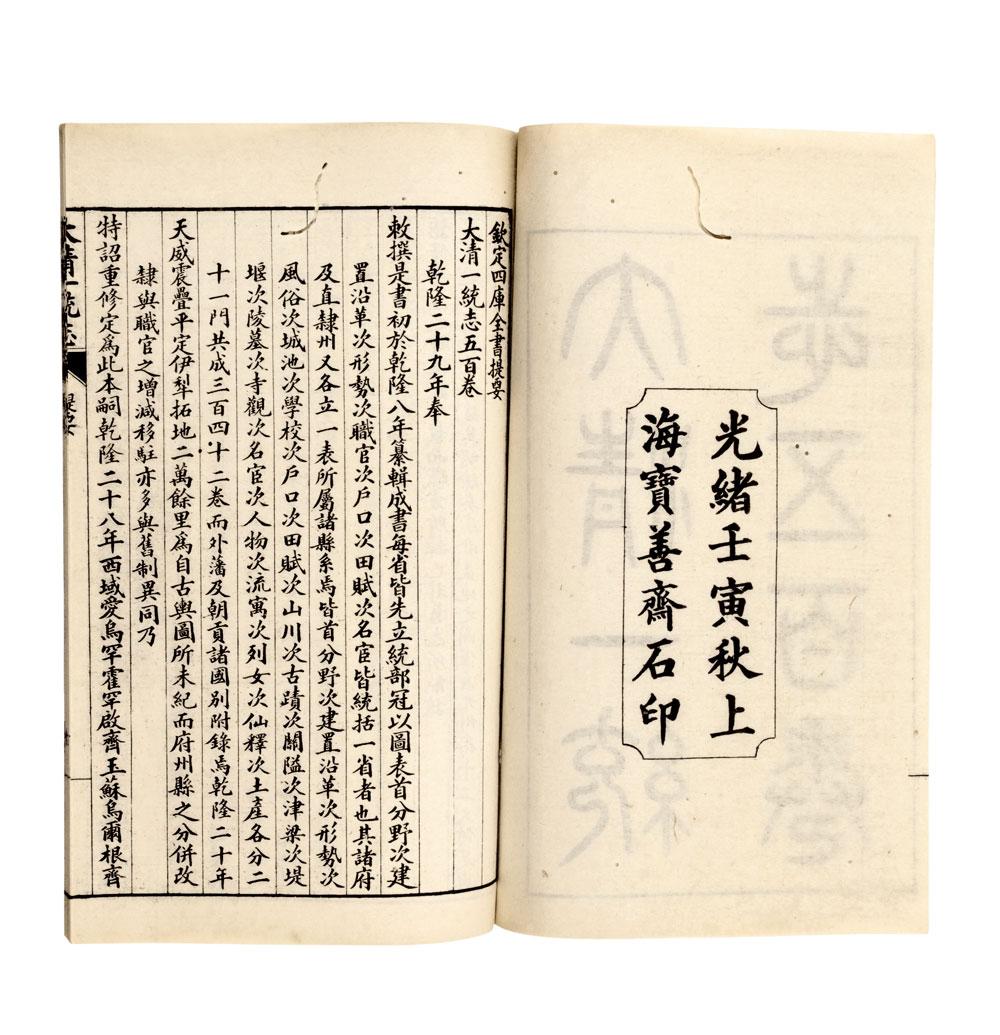 光緒壬寅秋上
海寶善齋石印
欽定四庫全書提要
大清一統志五百卷
乾隆二十九年奉
敕撰是書初於乾隆八年纂輯成書每省皆先立統部冠以圖表首分野次建
置沿革次形勢次職官次戶口次田賦次名宦皆統括一省者也其諸府
及直隸州又各立一表所屬諸縣系焉皆首分野次建置沿革次形勢次
風俗次城池次學校次戶口次田賦次山川次古蹟次關隘次津梁次堤
堰次陵墓次寺觀次名宦次人物次流寓次列女次仙釋次土產各分二
十一門共成三百四十二卷而外藩及朝貢諸國別附錄焉乾隆二十年
天威震疊平定伊犁拓地二萬餘里為自古輿圖所未紀而府州縣之分併改
隸與職官之增減移駐亦多與舊制異同乃
特詔重修定為此本嗣乾隆二十八年西域愛烏罕霍罕啟齊玉蘇烏爾根齊
大清一統志
提要